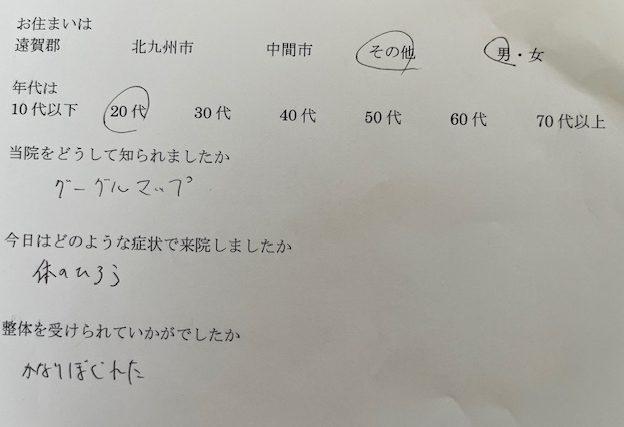 お住まいは
遠賀郡 北九州市 中間市 その他 男・女
年代は
10代以下 20代 30代 40代 50代 60代 70代以上
当院をどうして知られましたか
グーグルマップ
今日はどのような症状で来院しましたか
体のひろう
整体を受けられていかがでしたか
かなりほぐれた